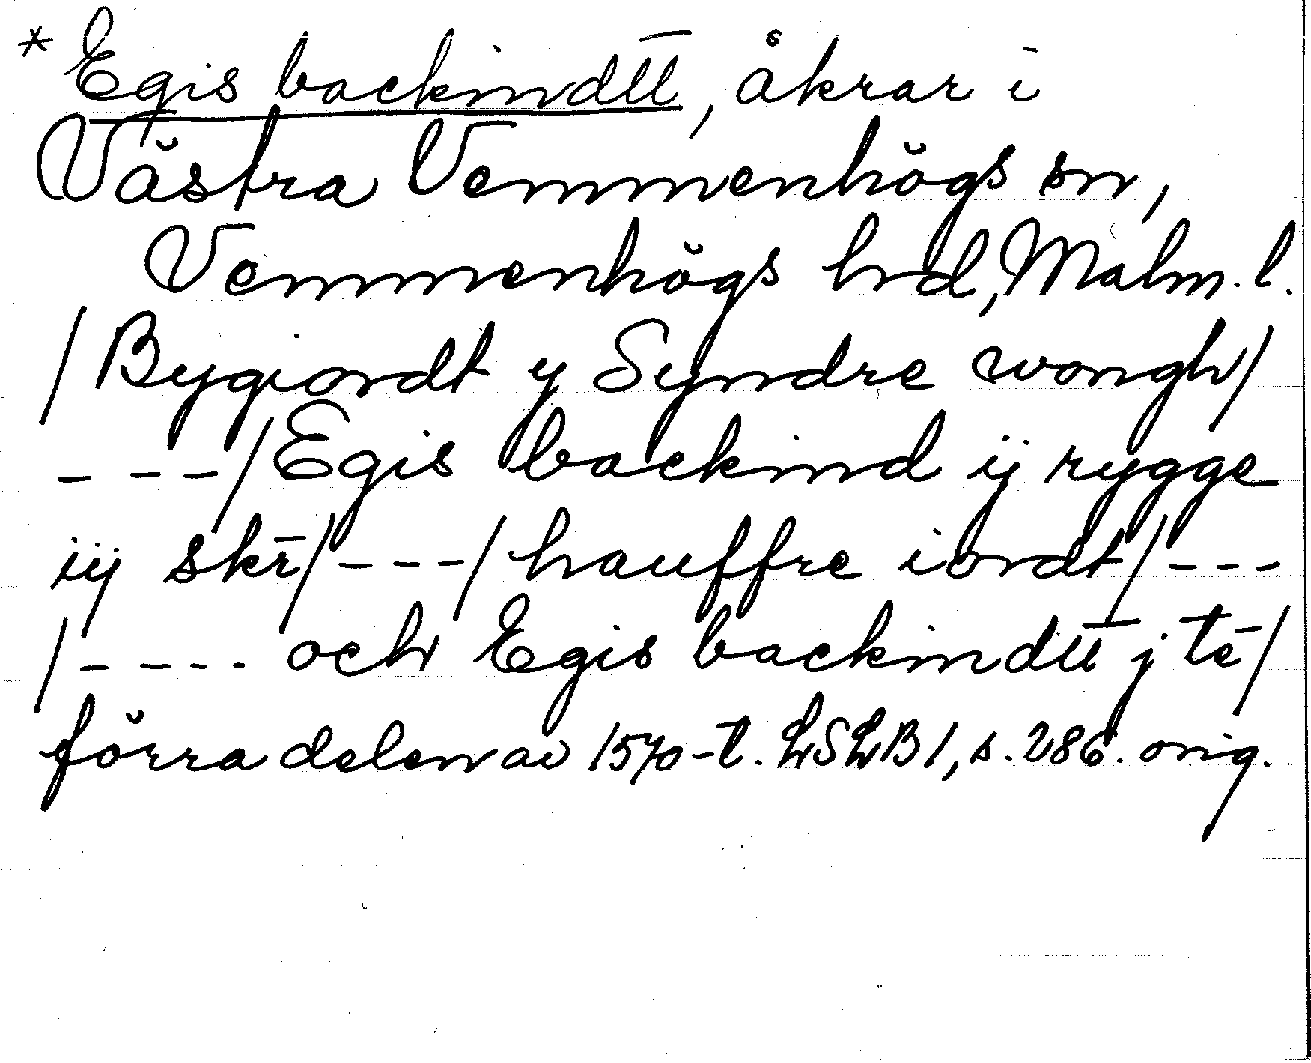 * Egis backindtt̄, åkrar i
Västra Vemmenhögs sn,
Vemmenhögs hrd, Malm. l.
/Bygiordt y Syndre wongh/
---/Egis backind ij rygge
iij skr̄/---/hauffre iordt/---
/---- och Egis backindtt̄ j tē/
förra delen av 1570-t. LSLB 1, s. 286. orig.